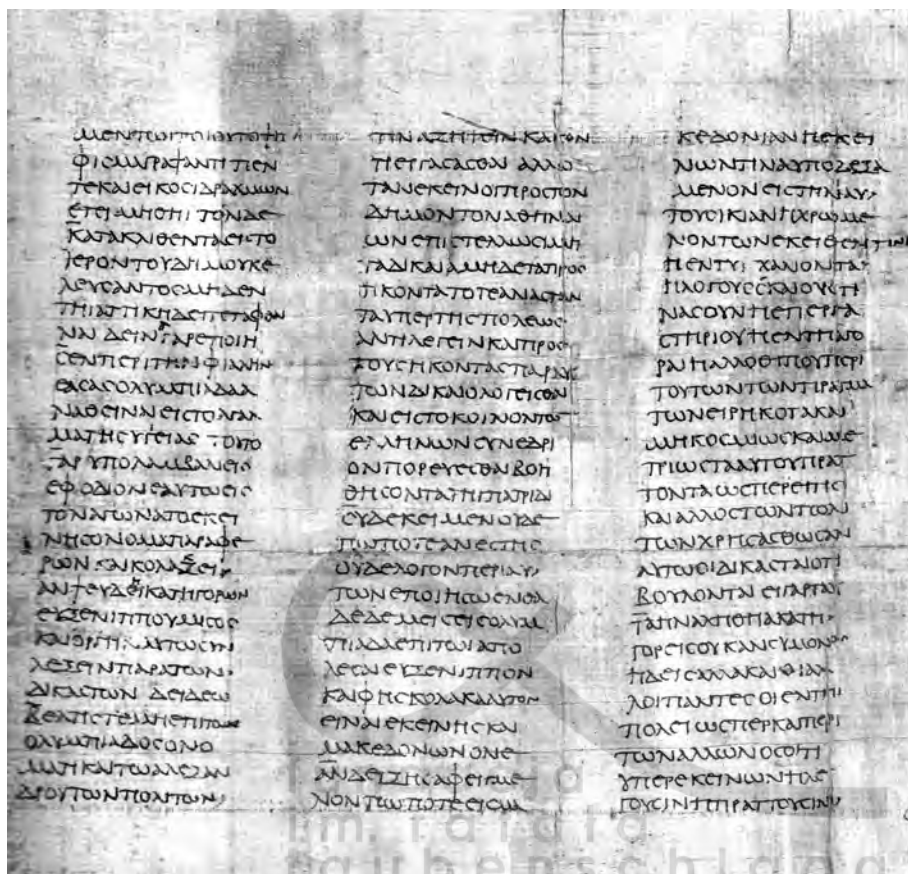 ΜΕΝΤΩΙΤΟΙΟΥΤΟΨΗ
ΦΙϹΜΑΓΡΑΨΑΝΤΙΠΕΝ
ΤΕΚΑΙΕΙΚΟϹΙΔΡΑΧΜΩΝ
ΕΤΕΙΜΗϹΗΙ ΤΟΝΔΕ
ΚΑΤΑΚΛΙΘΕΝΤΑΕΙϹΤΟ
ΙΕΡΟΝΤΟΥΔΗΜΟΥΚΕ
ΛΕΥϹΑΝΤΟϹΜΗΔΕΝ
ΤΗΙΑΤΤΙΚΗΙΔΕΙΤΕΤΑΦΘΑΙ
ΝΑΙ ΔΕΙΝΑΓΑΡΕΠΟΙΗ
ϹΕΝΠΕΡΙΤΗΝΦΙΑΛΗΝ
ΕΑϹΑϹΟΛΥΜΠΙΑΔΑΑ
ΝΑΘΕΙΝΑΙΕΙϹΤΟΑΓΑΛ
ΜΑΤΗϹΥΓΕΙΑϹ ΤΟΥΤΟ
ΓΑΡΥΠΟΛΑΜΒΑΝΕΙϹ
ΕΦΟΔΙΟΝΕΑΥΤΩΙΕΙϹ
ΤΟΝΑΓΩΝΑΤΟΕΚΕΙ
ΝΗϹΟΝΟΜΑΠΑΡΑΦΕ
ΡΩΝ ΚΑΙΚΟΛΑΚΕΙΑΝ
ΨΕΥΔΗΚΑΤΗΓΟΡΩΝ
ΕΥΞΕΝΙΠΠΟΥΜΙϹΟϹ
ΚΑΙΟΡΓΗΝΑΥΤΩΙϹΥΛ
ΛΕΞΕΙΝΠΑΡΑΤΩΝ
ΔΙΚΑϹΤΩΝ ΔΕΙΔΕΩ
ΒΕΛΤΙϹΤΕΜΗΕΠΙΤΩΙ
ΟΛΥΜΠΙΑΔΟϹΟΝΟ
ΜΑΤΙΚΑΙΤΩΙΑΛΕΞΑΝ
ΔΡΟΥΤΩΝΠΟΛΙΤΩΝ
ΤΙΝΑϹΖΗΤΕΙΝΚΑΚΟΝ
ΤΙΕΡΓΑϹΑϹΘΑΙ ΑΛΛΟ
ΤΑΝΕΚΕΙΝΟΙΠΡΟϹΤΟΝ
ΔΗΜΟΝΤΟΝΑΘΗΝΑΙ
ΩΝΕΠΙϹΤΕΛΛΩϹΙΜΗ
ΤΑΔΙΚΑΙΑΜΗΔΕΤΑΠΡΟϹ
ΗΚΟΝΤΑΤΟΤΕΑΝΑϹΤΑΝ
ΤΑΥΠΕΡΤΗϹΠΟΛΕΩϹ
ΑΝΤΙΛΕΓΕΙΝΚΑΙΠΡΟϹ
ΤΟΥϹΗΚΟΝΤΑϹΠΑΡΑΥ
ΤΩΝΔΙΚΑΙΟΛΟΓΕΙϹΘΑΙ
ΚΑΙΕΙϹΤΟΚΟΙΝΟΝΤΩΝ
ΕΛΛΗΝΩΝϹΥΝΕΔΡΙ
ΟΝΠΟΡΕΥΕϹΘΑΙΒΟΗ
ΘΗϹΟΝΤΑΤΗΙΠΑΤΡΙΔΙ
ϹΥΔΕΚΕΙΜΕΝΟΥΔΕ
ΠΩΠΟΤΕΑΝΕϹΤΗϹ
ΟΥΔΕΛΟΓΟΝΠΕΡΙΑΥ
ΤΩΝΕΠΟΙΗϹΩΕΝΘΑ
ΔΕΔΕΜΕΙϹΕΙϹΟΛΥΜ
ΠΙΑΔΑΕΠΙΤΩΙΑΠΟ
ΛΕϹΑΙΕΥΞΕΝΙΠΠΟΝ
ΚΑΙΦΗϹΚΟΛΑΚΑΑΥΤΟΝ
ΕΙΝΑΙΕΚΕΙΝΗϹΚΑΙ
ΜΑΚΕΔΟΝΩΝΟΝΕ
ΑΝΔΕΙΞΗϹΑΦΕΙΓΜΕ
ΝΟΝΠΩΠΟΤΕΕΙϹΜΑ
ΚΕΔΟΝΙΑΝΗΕΚΕΙ
ΝΩΝΤΙΝΑΥΠΟΔΕΞΑ
ΜΕΝΟΝΕΙϹΤΗΝΑΥ
ΤΟΥΟΙΚΙΑΝΗΧΡΩΜΕ
ΝΟΝΤΩΝΕΚΕΙΘΕΝΤΙΝΙ
ΗΕΝΤΥΓΧΑΝΟΝΤΑ
ΗΛΟΓΟΥϹΚΑΙΟΥϹΤΙ
ΝΑϹΟΥΝΗΕΠΕΡΓΑ
ϹΤΗΡΙΟΥΗΕΝΤΗΙΑΓΟ
ΡΑΙΗΑΛΛΟΘΙΠΟΥΠΕΡΙ
ΤΟΥΤΩΝΤΩΝΠΡΑΓΜΑ
ΤΩΝΕΙΡΗΚΟΤΑΚΑΙ
ΜΗΚΟϹΜΙΩϹΚΑΙΜΕ
ΤΡΙΩϹΤΑΑΥΤΟΥΠΡΑΤ
ΤΟΝΤΑΩϹΠΕΡΕΙΤΙϹ
ΚΑΙΑΛΛΟϹΤΩΝΠΟΛΙ
ΤΩΝΧΡΗϹΑϹΘΩϹΑΝ
ΑΥΤΩΙΟΙΔΙΚΑϹΤΑΙΟΤΙ
ΒΟΥΛΟΝΤΑΙΕΙΓΑΡΤΑΥ
ΤΑΗΝΑΛΗΘΗΑΚΑΤΗ
ΓΟΡΕΙϹΟΥΚΑΝϹΥΜΟΝΟϹ
ΗΔΕΙϹΑΛΛΑΚΑΙΟΙΑΛ
ΛΟΙΠΑΝΤΕϹΟΙΕΝΤΗΙ
ΠΟΛΕΙΩϹΠΕΡΚΑΙΠΕΡΙ
ΤΩΝΑΛΛΩΝΟϹΟΙΤΙ
ΥΠΕΡΕΚΕΙΝΩΝΗΛΕ
ΓΟΥϹΙΝΗΠΡΑΤΤΟΥϹΙΝ